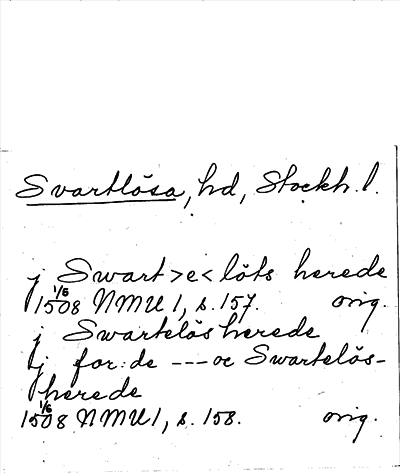 Svartlösa, hd, Stockh. l.
j Swart>e<löts herede
1508 1/6 NMU 1, s. 157. orig.
j Swartelösherede
j for:de --- oc Swartelös-
herede
1508 1/6 NMU 1, s. 158. orig.